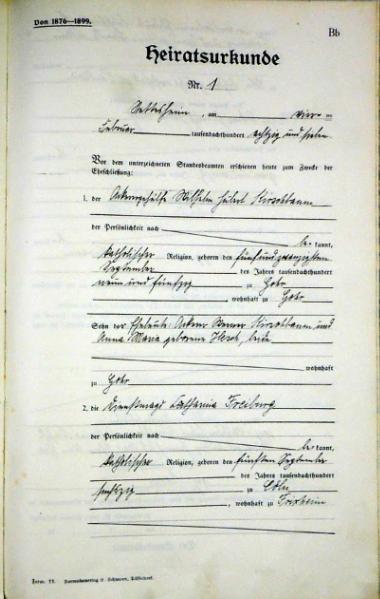 Von 1876—1899.
Bb
Heiratsurkunde
Nr. 1
Nettesheim, am vier=
Februar tausendachthundert achtzig und sieben
Vor dem unterzeichneten Standesbeamten erschienen heute zum Zwecke der
Eheschließung:
1. der Ackergehülfe Wilhelm Hubert Kirschbaum
der Persönlichkeit nach
be kannt,
katholischer Religion, geboren den fünfundzwanzigsten
September des Jahres tausendachthundert
neun und fünfzig zu Gohr
wohnhaft zu Gohr
Sohn der Eheleute Ackerer Werner Kirschbaum und
Anna Maria geborene beide
wohnhaft
zu Gohr
2. die Dienstmagd Catharina Freiburg
der Persönlichkeit nach
be kannt,
katholischer Religion, geboren den fünften September
des Jahres tausendachthundert
sechszig zu Cöln
, wohnhaft zu Frixheim
Form. 11.